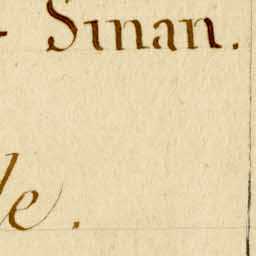 Sinan.
le.